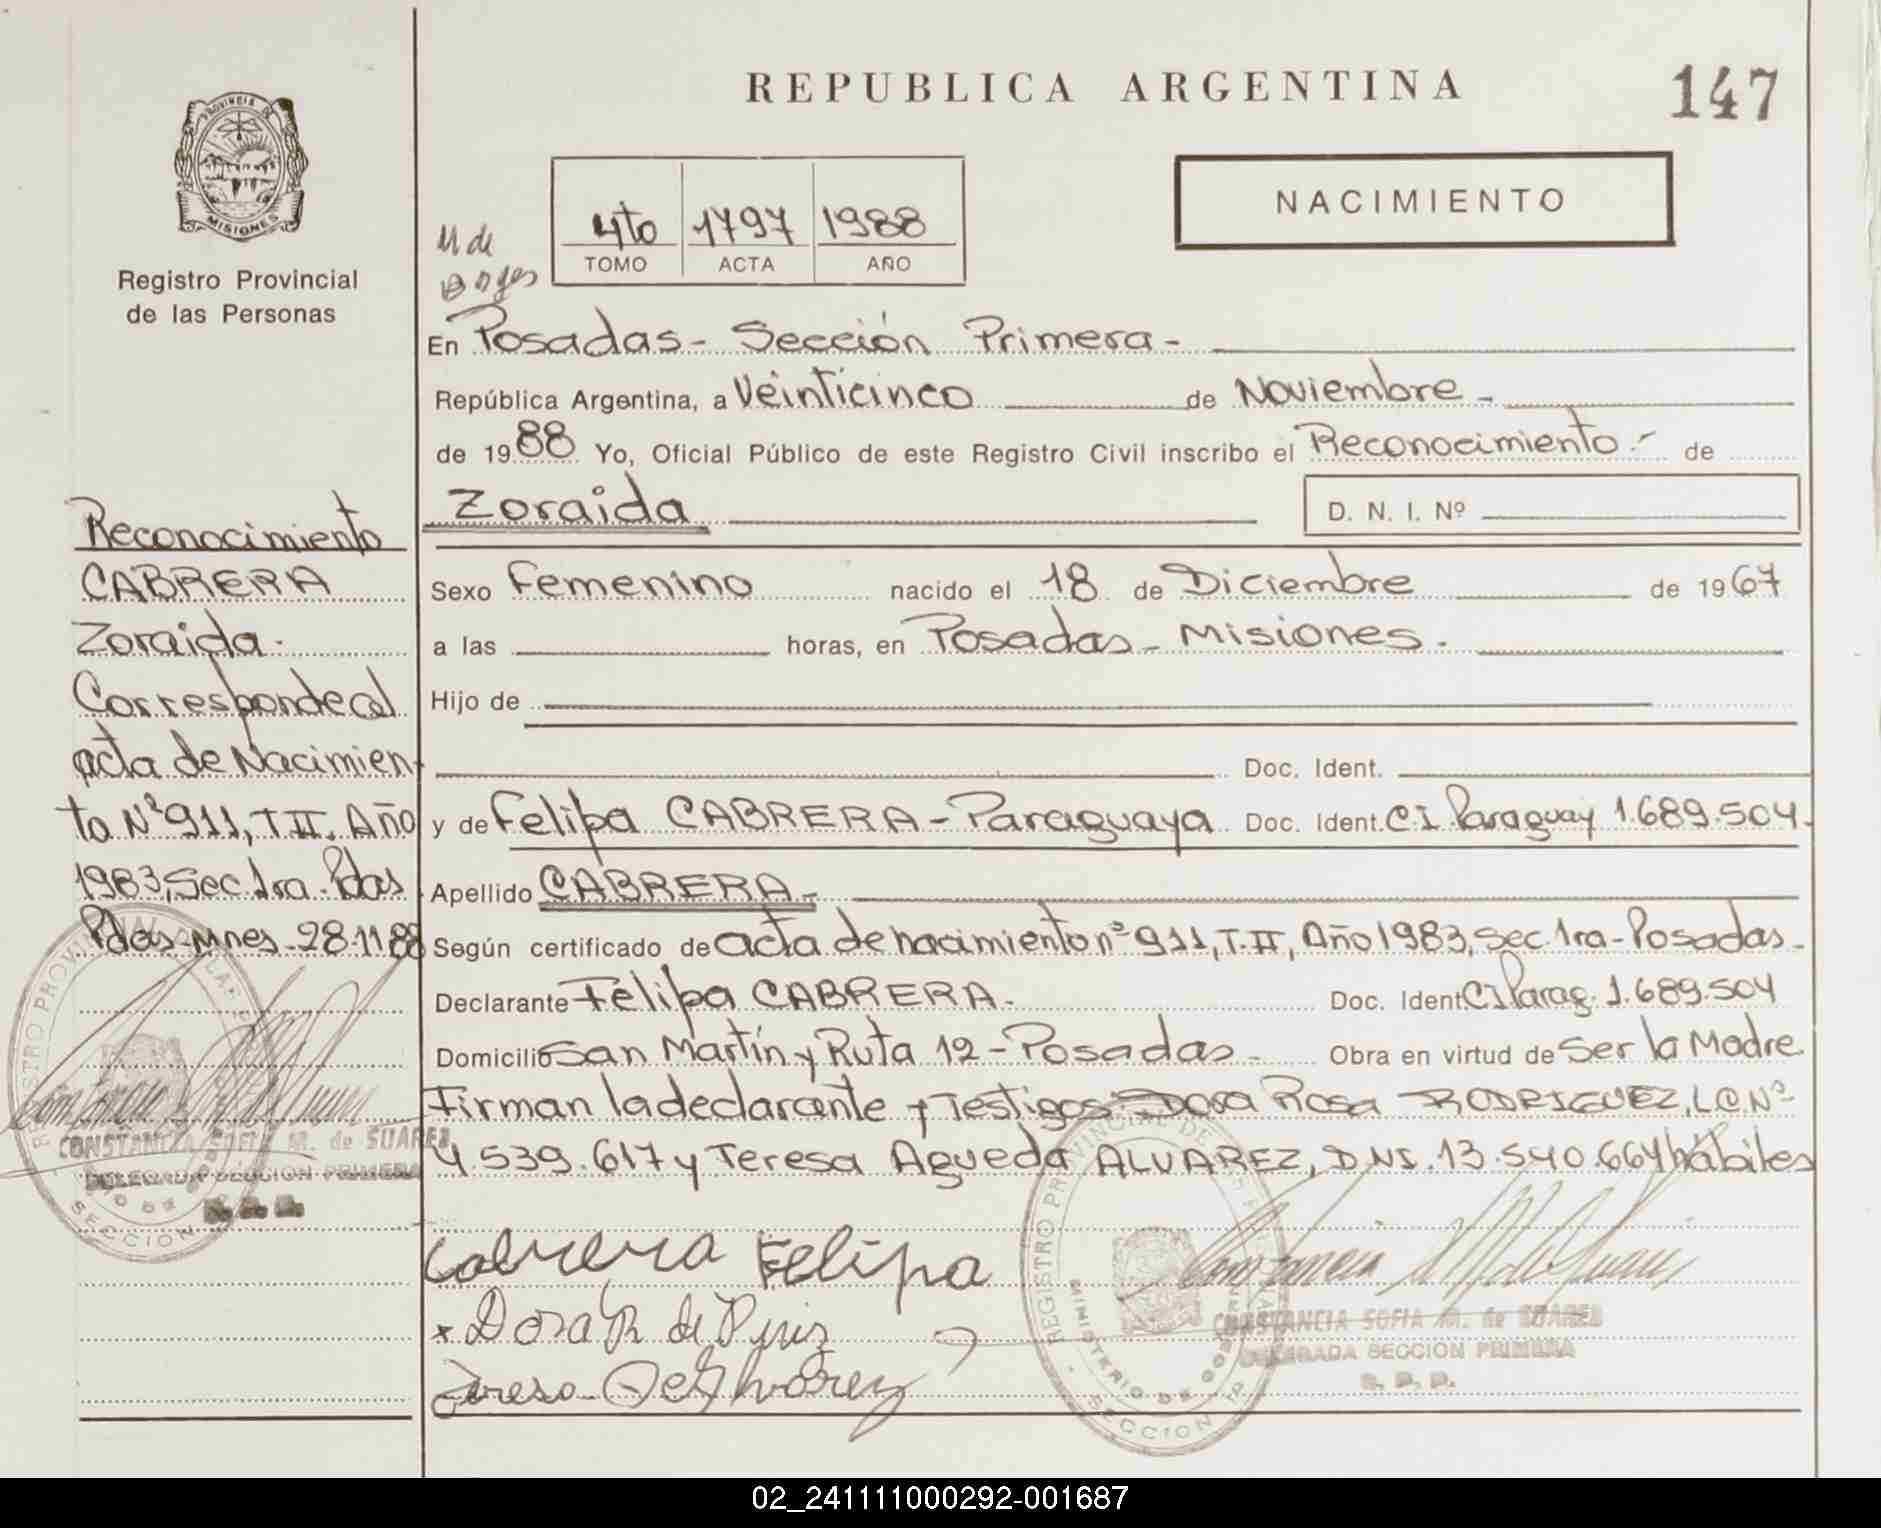 REPUBLICA ARGENTINA
147
PROVINCIA DE
MISIONES
Registro Provincial
de las Personas
NACIMIENTO
4to 1797 1988
TOMO ACTA AÑO
M de
En Posadas - Sección Primera -
República Argentina, a Veinticinco de Noviembre -
de 1988 Yo, Oficial Público de este Registro Civil inscribo el Reconocimiento.- de
Zoraida
D. N. I. Nº
Sexo Femenino nacido el 18 de Diciembre de 1967
a las horas, en Posadas - Misiones.
Hijo de
Doc. Ident.
y de Felipa CABRERA - Paraguaya Doc. Ident. C.I. Paraguay 1.689.504.
Apellido CABRERA.-
Según certificado de acta de nacimiento nº 911, T. II, Año 1983, Sec. 1ra - Posadas -
Declarante Felipa CABRERA. Doc. Ident. C.I. Parag. 1.689.504
Domicilio San Martín y Ruta 12 - Posadas - Obra en virtud de Ser la Madre
Firman la declarante y Testigos: Dora Rosa RODRIGUEZ, L.C. Nº
4.539.617 y Teresa Agueda ALVAREZ, D.N.I. 13.540.664 hábiles
Cabrera Felipa
x Dora R de
Teresa
CONSTANCIA SOFIA M. de SUAREZ
DELEGADA SECCION PRIMERA
R. P. P.
REGISTRO PROVINCIAL DE LAS PERSONAS
MINISTERIO DE GOBIERNO
SECCION 1ª
Reconocimiento
CABRERA
Zoraida.
Corresponde al
acta de Nacimien-
to Nº 911, T II. Año
1983, Sec. 1ra. Pdas
Pdas - Mnes - 28.11.88
CONSTANCIA SOFIA M. de SUAREZ
DELEGADA SECCION PRIMERA
R. P. P.
02_241111000292-001687